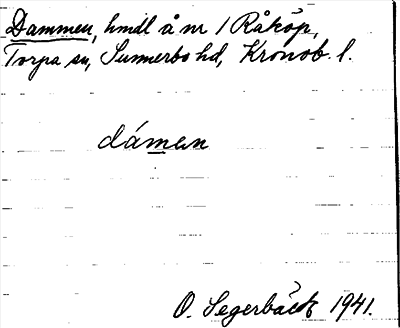 Dammen, hmdl å nr 1 Råköp,
Torpa sn, Sunnerbo hd, Kronob. l.
dámen
O. Segerbäck 1941.